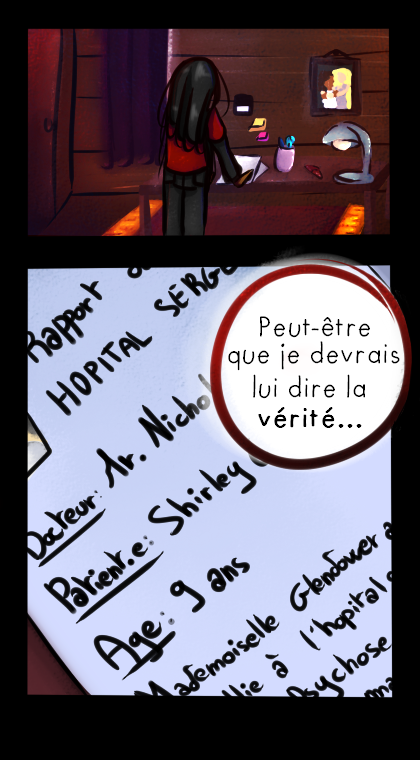 Rapport
HOPITAL
Peut-être
que je devrais
lui dire la
vérité...
Docteur:
Patient.e: Shirley
Age: 9 ans
Mademoiselle Glendower a
à l'hopital
Psychose